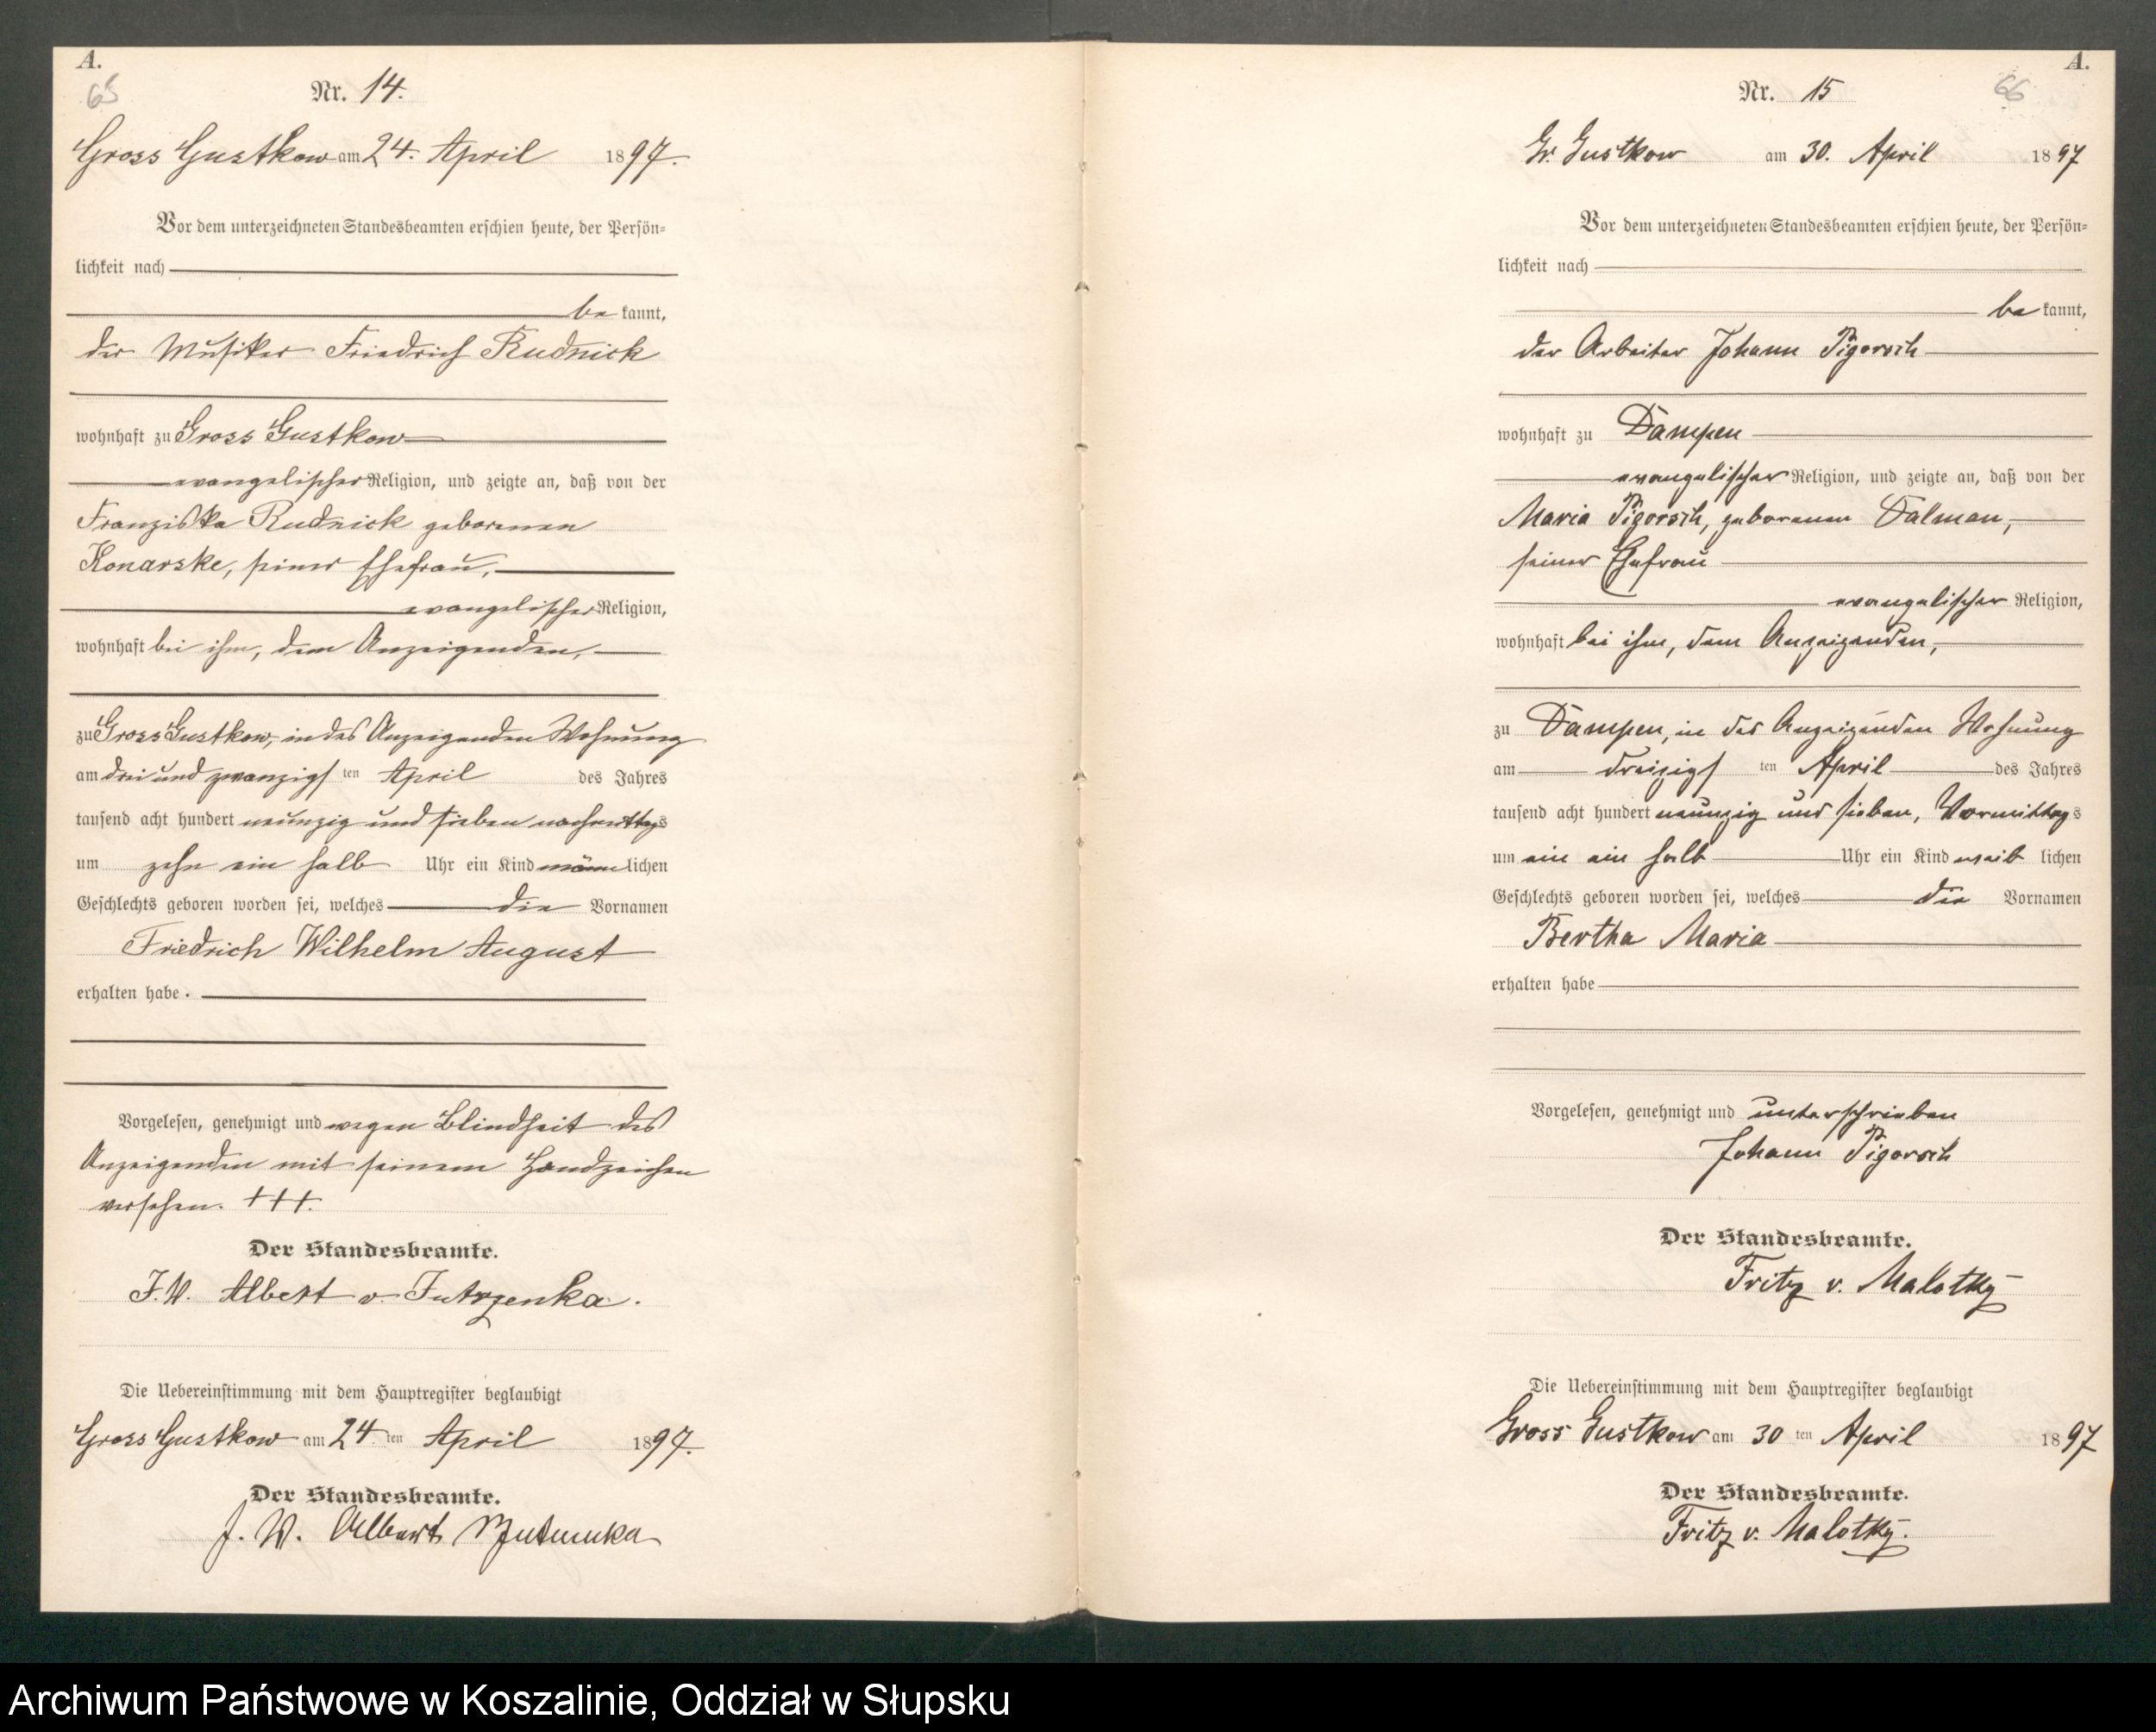 A.
65
Nr. 14.
Gross Gustkow am 24. April 1897.
Vor dem unterzeichneten Standesbeamten erschien heute, der Persön=
lichkeit nach
be kannt,
der Musiker Friedrich Rudnick
wohnhaft zu Gross Gustkow
evangelischer Religion, und zeigte an, daß von der
Franziska Rudnick geborenen
Konarske, seiner Ehefrau,
evangelischer Religion,
wohnhaft bei ihm, dem Anzeigenden,
zu Gross Gustkow, in des Anzeigenden Wohnung
am drei und zwanzigsten April des Jahres
tausend acht hundert neunzig und sieben nachmittags
um zehn ein halb Uhr ein Kind männlichen
Geschlechts geboren worden sei, welches die Vornamen
Friedrich Wilhelm August
erhalten habe.
Vorgelesen, genehmigt und wegen Blindheit des
Anzeigenden mit seinem Handzeichen
versehen. +++.
Der Standesbeamte.
J.V. Albert v. Jutrzenka.
Die Uebereinstimmung mit dem Hauptregister beglaubigt
Gross Gustkow am 24.ten April 1897.
Der Standesbeamte.
J. V. Albert
A.
66
Nr. 15
Gr. Gustkow am 30. April 1897
Vor dem unterzeichneten Standesbeamten erschien heute, der Persön=
lichkeit nach
be kannt,
der Arbeiter Johann Pigorsch
wohnhaft zu Dampen
evangelischer Religion, und zeigte an, daß von der
Maria Pigorsch, geborenen Dalman,
seiner Ehefrau
evangelischer Religion,
wohnhaft bei ihm, dem Anzeigenden,
zu Dampen, in des Anzeigenden Wohnung
am dreizigsten April des Jahres
tausend acht hundert neunzig und sieben, Vormittags
um ein ein halb Uhr ein Kind weib lichen
Geschlechts geboren worden sei, welches die Vornamen
Bertha Maria
erhalten habe
Vorgelesen, genehmigt und unterschrieben
Johann Pigorsch
Der Standesbeamte.
Fritz v. Malotky
Die Uebereinstimmung mit dem Hauptregister beglaubigt
Gross Gustkow am 30 ten April 1897
Der Standesbeamte.
Fritz v. Malotky.
Archiwum Państwowe w Koszalinie, Oddział w Słupsku